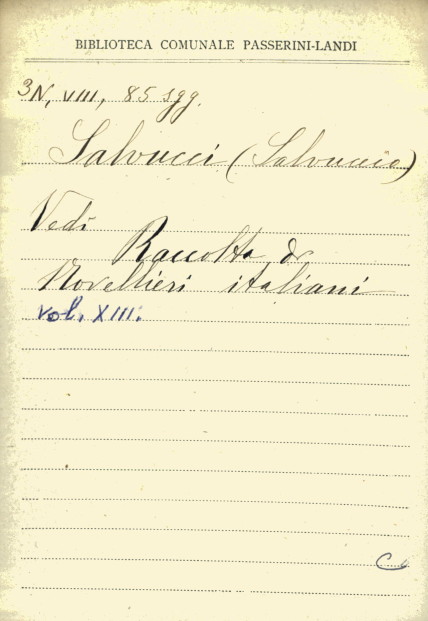 BIBLIOTECA COMUNALE PASSERINI-LANDI
3N, VIII, 85 sgg.
Salvucci (Salvuccio)
Vedi
Raccolta di
Novellieri italiani
vol. XIII.
C